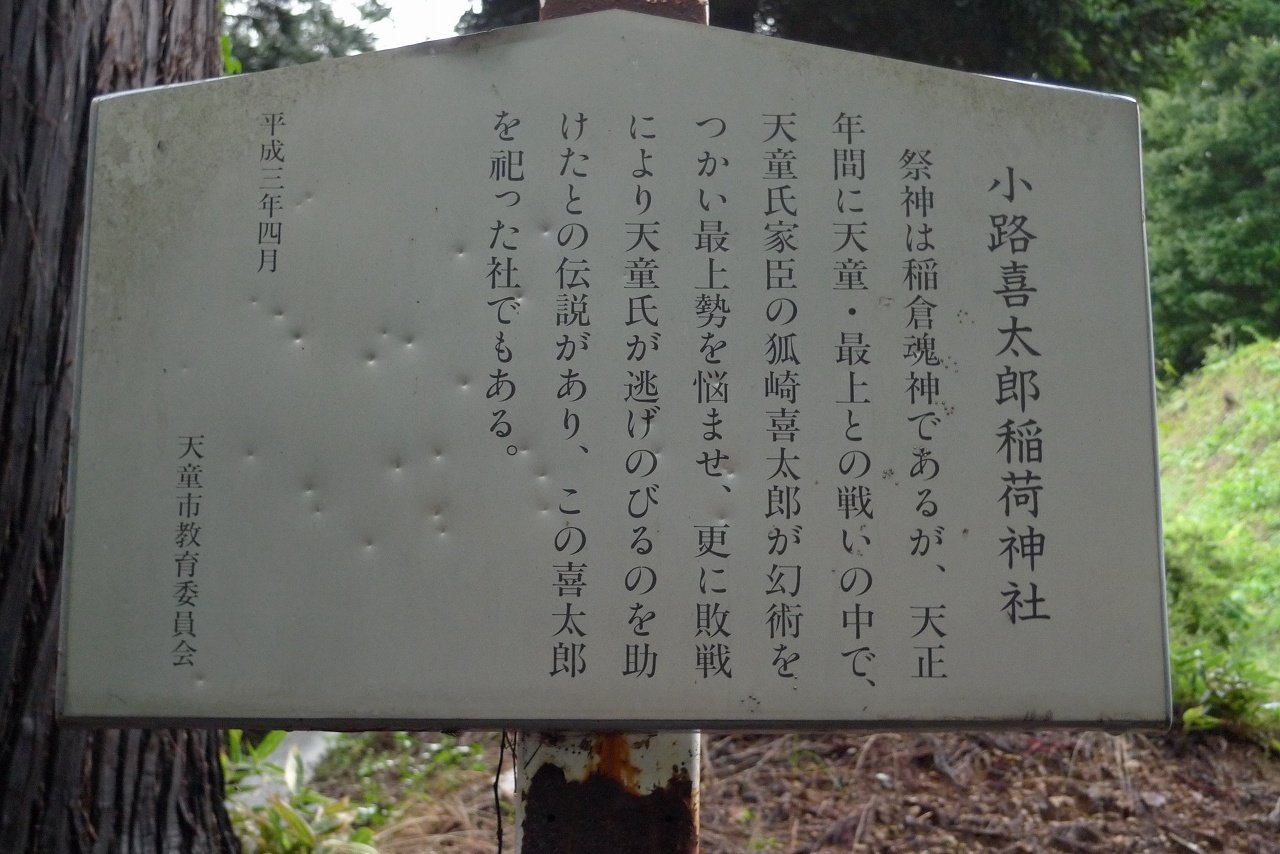 小路喜太郎稲荷神社
祭神は稲倉魂神であるが、天正
年間に天童・最上との戦いの中で、
天童氏家臣の狐崎喜太郎が幻術を
つかい最上勢を悩ませ、更に敗戦
により天童氏が逃げのびるのを助
けたとの伝説があり、この喜太郎
を祀った社でもある。
平成三年四月
天童市教育委員会